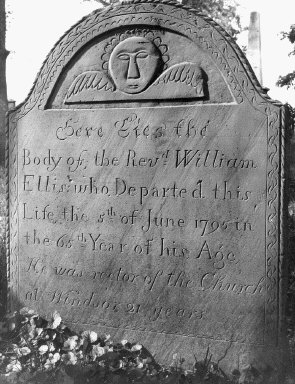 Here Lies the
Body of the Revd. William
Ellis, who Departed this
Life the 5th of June 1795 in
the 65th Year of his Age
He was rector of the Church
at Windsor 21 years